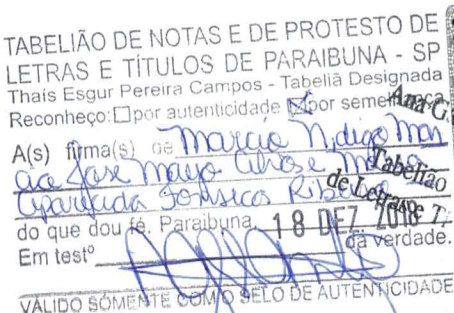 TABELIÃO DE NOTAS E DE PROTESTO DE
LETRAS E TÍTULOS DE PARAIBUNA - SP
Thais Esgur Pereira Campos - Tabeliã Designada
Reconheço: ☐ por autenticidade ☒ por semelhança
Ana G.
A(s) firma(s) de Marcia N, digo Mar
cia Jose
Tabelião
Aparecida Fonseca
de Letras e T
do que dou fé. Paraibuna, 18 DEZ 2018
Em testº da verdade.
VÁLIDO SOMENTE COM O SELO DE AUTENTICIDADE